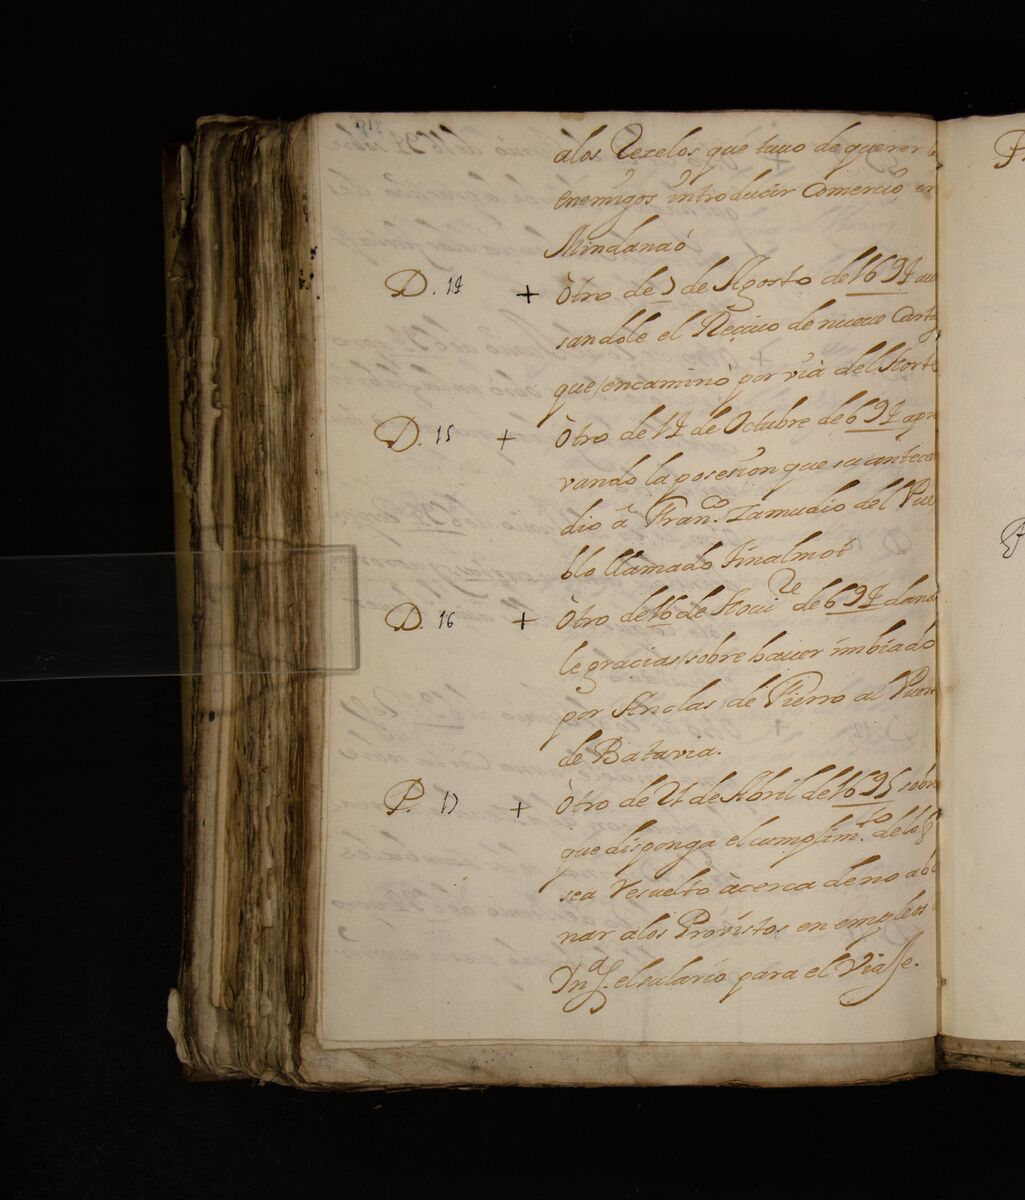 alos Rezelos que tuuo de querer
enemigos introducir Comercio en
Mindanaò
D. 14 + Otro de 7 de Agosto de 1694 aui
sandole el Reciuo de nueue Cartas
que encaminò por via del Norte
D. 15 + Otro de 14 de Octubre de 694 apro
vando la posesion que su antece
dio â Fran.co Zamudio del Pue
blo llamado Tinalmot
D. 16 + Otro de 16 de Noui re de 694 dando
le gracias sobre hauer imbiado
por Anclas de Fierro al Puer
de Batavia.
P. 17 + Otro de 21 de Abril de 1695 sobre
que disponga el cumplim.to de lo
sea resuelto àcerca de no abo
nar alos Provistos en empleos
Yn.as el salario para el Viaje.